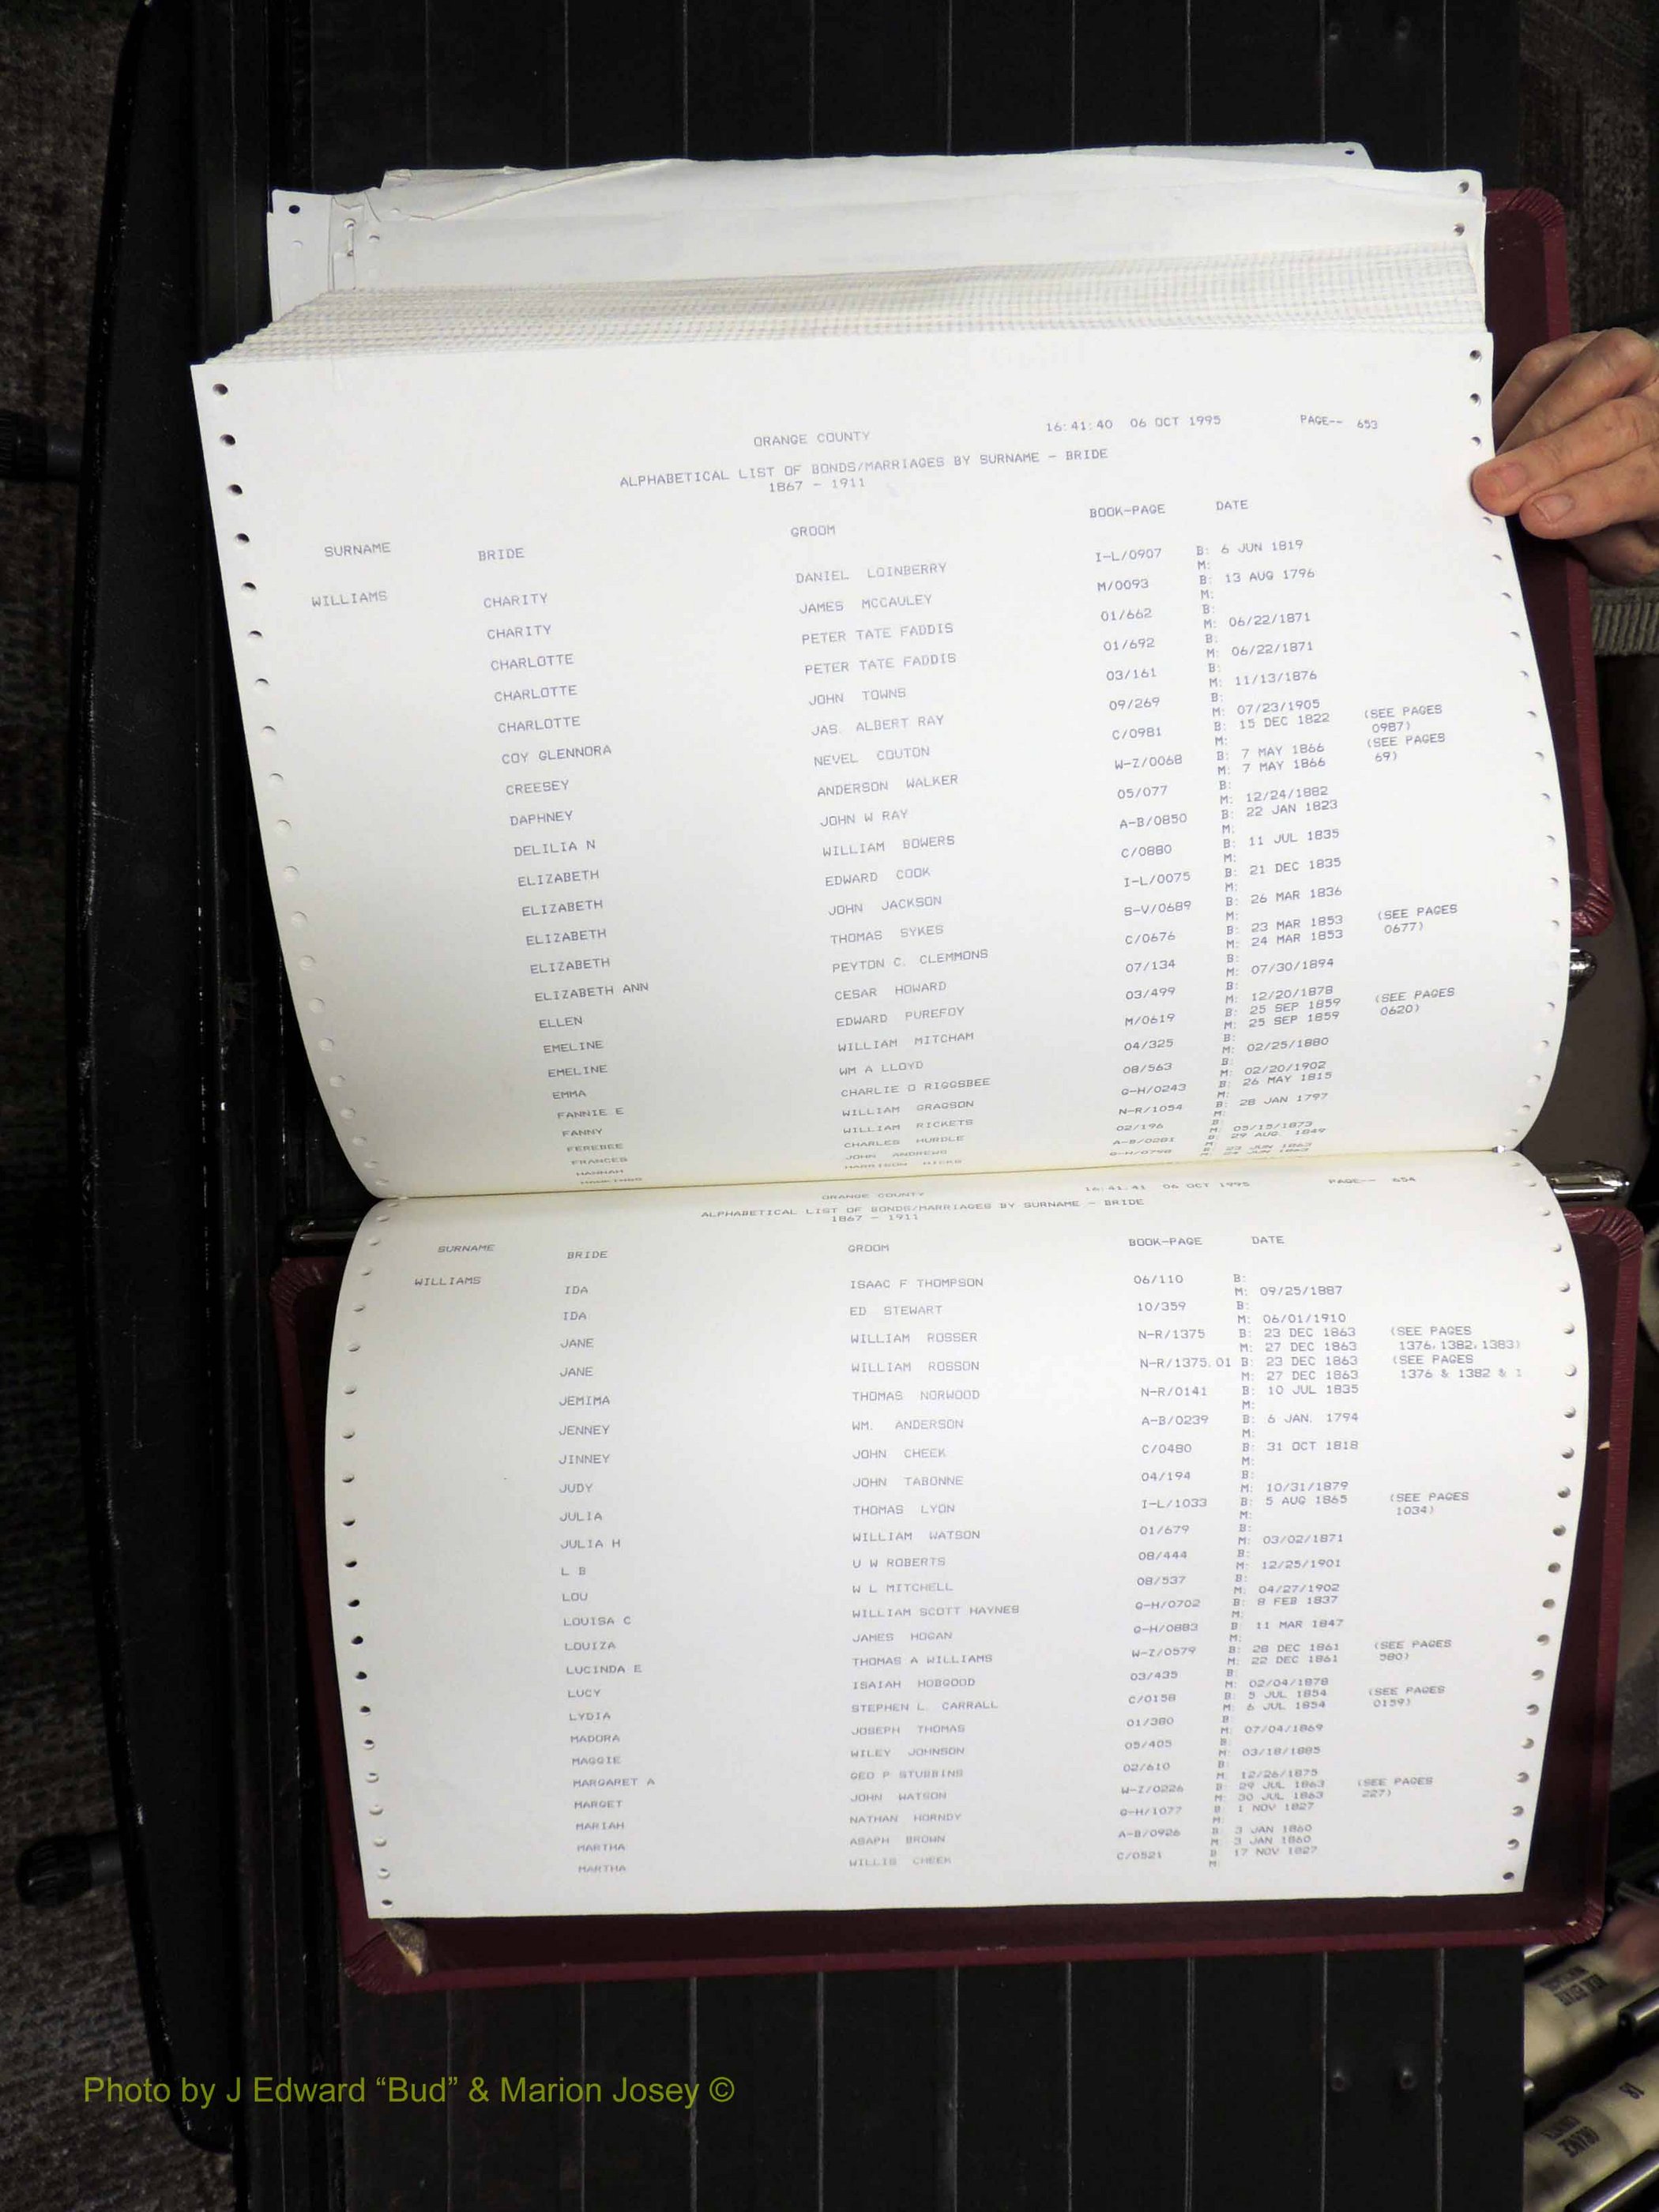 ORANGE COUNTY 16:41:40 06 OCT 1995 PAGE-- 653
ALPHABETICAL LIST OF BONDS/MARRIAGES BY SURNAME - BRIDE
1867 - 1911
SURNAME BRIDE GROOM BOOK-PAGE DATE
WILLIAMS CHARITY DANIEL LOINBERRY I-L/0907 B: 6 JUN 1819
M:
CHARITY JAMES MCCAULEY M/0093 B: 13 AUG 1796
M:
CHARLOTTE PETER TATE FADDIS 01/662 B:
M: 06/22/1871
CHARLOTTE PETER TATE FADDIS 01/692 B:
M: 06/22/1871
CHARLOTTE JOHN TOWNS 03/161 B:
M: 11/13/1876
COY GLENNORA JAS. ALBERT RAY 09/269 B:
M: 07/23/1905
CREESEY NEVEL COUTON C/0981 B: 15 DEC 1822 (SEE PAGES
M: 0987)
DAPHNEY ANDERSON WALKER W-Z/0068 B: 7 MAY 1866 (SEE PAGES
M: 7 MAY 1866 69)
DELILIA N JOHN W RAY 05/077 B:
M: 12/24/1882
ELIZABETH WILLIAM BOWERS A-B/0850 B: 22 JAN 1823
M:
ELIZABETH EDWARD COOK C/0880 B: 11 JUL 1835
M:
ELIZABETH JOHN JACKSON I-L/0075 B: 21 DEC 1835
M:
ELIZABETH THOMAS SYKES S-V/0689 B: 26 MAR 1836
M:
ELIZABETH ANN PEYTON C. CLEMMONS C/0676 B: 23 MAR 1853 (SEE PAGES
M: 24 MAR 1853 0677)
ELLEN CESAR HOWARD 07/134 B:
M: 07/30/1894
EMELINE EDWARD PUREFOY 03/499 B:
M: 12/20/1878
EMELINE WILLIAM MITCHAM M/0619 B: 25 SEP 1859 (SEE PAGES
M: 25 SEP 1859 0620)
EMMA WM A LLOYD 04/325 B:
M: 02/25/1880
FANNIE E CHARLIE O RIGGSBEE 08/563 B:
M: 02/20/1902
FANNY WILLIAM GRAGSON G-H/0243 B: 26 MAY 1815
M:
FEREBEE WILLIAM RICKETS N-R/1054 B: 28 JAN 1797
M:
FRANCES CHARLES HURDLE 02/196
M: 05/15/1873
HANNAH JOHN ANDREWS A-B/0281 B: 29 AUG. 1849
HARRISON HICKS G-H/0798
ORANGE COUNTY 16:41:41 06 OCT 1995 PAGE-- 654
ALPHABETICAL LIST OF BONDS/MARRIAGES BY SURNAME - BRIDE
1867 - 1911
SURNAME BRIDE GROOM BOOK-PAGE DATE
WILLIAMS IDA ISAAC F THOMPSON 06/110 B:
M: 09/25/1887
IDA ED STEWART 10/359 B:
M: 06/01/1910
JANE WILLIAM ROSSER N-R/1375 B: 23 DEC 1863 (SEE PAGES
M: 27 DEC 1863 1376,1382,1383)
JANE WILLIAM ROSSON N-R/1375.01 B: 23 DEC 1863 (SEE PAGES
M: 27 DEC 1863 1376 & 1382 & 1
JEMIMA THOMAS NORWOOD N-R/0141 B: 10 JUL 1835
M:
JENNEY WM. ANDERSON A-B/0239 B: 6 JAN. 1794
M:
JINNEY JOHN CHEEK C/0480 B: 31 OCT 1818
M:
JUDY JOHN TABONNE 04/194 B:
M: 10/31/1879
JULIA THOMAS LYON I-L/1033 B: 5 AUG 1865 (SEE PAGES
M: 1034)
JULIA H WILLIAM WATSON 01/679 B:
M: 03/02/1871
L B U W ROBERTS 08/444 B:
M: 12/25/1901
LOU W L MITCHELL 08/537 B:
M: 04/27/1902
LOUISA C WILLIAM SCOTT HAYNES G-H/0702 B: 8 FEB 1837
M:
LOUIZA JAMES HOGAN G-H/0883 B: 11 MAR 1847
M:
LUCINDA E THOMAS A WILLIAMS W-Z/0579 B: 28 DEC 1861 (SEE PAGES
M: 22 DEC 1861 580)
LUCY ISAIAH HOBGOOD 03/435 B:
M: 02/04/1878
LYDIA STEPHEN L. CARRALL C/0158 B: 5 JUL 1854 (SEE PAGES
M: 6 JUL 1854 0159)
MADORA JOSEPH THOMAS 01/380 B:
M: 07/04/1869
MAGGIE WILEY JOHNSON 05/405 B:
M: 03/18/1885
MARGARET A GEO P STUBBINS 02/610 B:
M: 12/26/1875
MARGET JOHN WATSON W-Z/0226 B: 29 JUL 1863 (SEE PAGES
M: 30 JUL 1863 227)
MARIAH NATHAN HORNDY G-H/1077 B: 1 NOV 1827
M:
MARTHA ASAPH BROWN A-B/0926 B: 3 JAN 1860
M: 3 JAN 1860
MARTHA WILLIS CHEEK C/0521 B: 17 NOV 1827
M:
Photo by J Edward “Bud” & Marion Josey ©